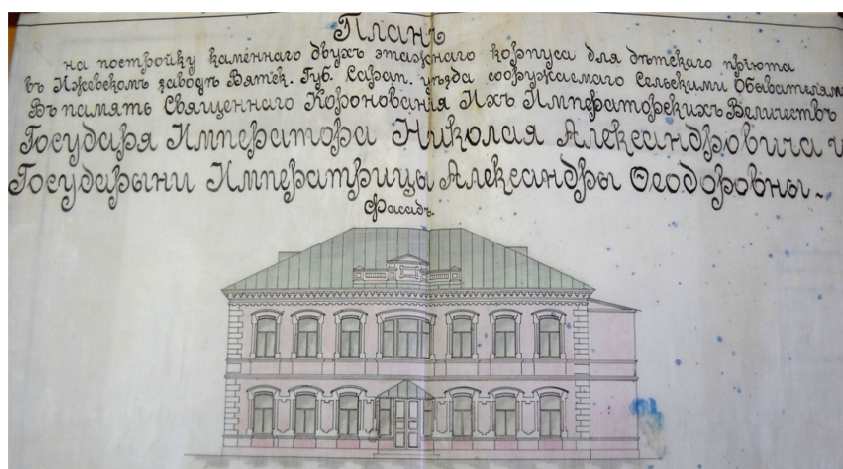 Планъ
на постройку каменнаго двухъ этажнаго корпуса для дѣтскаго прiюта
въ Ижевскомъ заводѣ Вятск. Губ. Сарап. уѣзда сооружаемаго Сельскими Обывателями
Въ память Священнаго Коронованія Ихъ Императорскихъ Величествъ
Государя Императора Николая Александровича и
Государыни Императрицы Александры Ѳеодоровны.
Фасадъ.